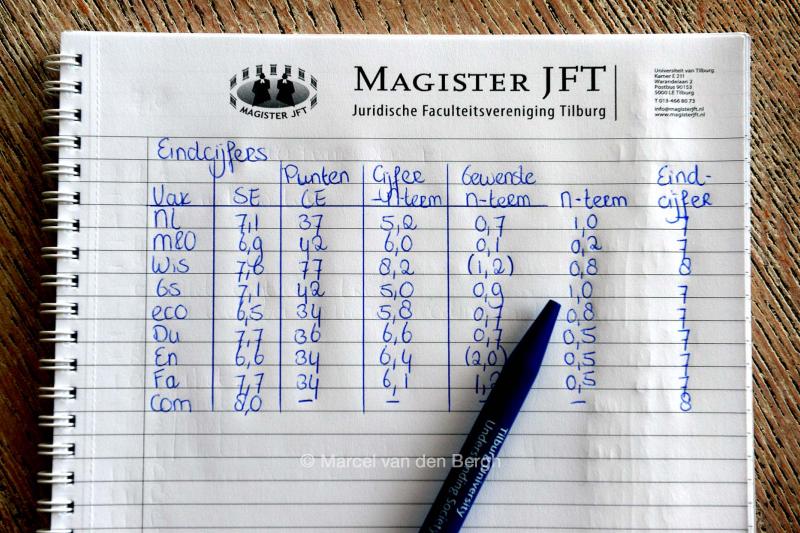 MAGISTER JFT
MAGISTER JFT
Juridische Faculteitsvereniging Tilburg
Universiteit van Tilburg
Kamer E 211
Warandelaan 2
Postbus 90153
5000 LE Tilburg
T 013-466 80 73
info@magisterjft.nl
www.magisterjft.nl
Eindcijfers
Punten Cijfer Gewenste Eind-
Vak SE CE -n-term n-term n-term cijfer
NL 7,1 37 5,2 0,7 1,0 7
M&O 6,9 42 6,0 0,1 0,2 7
Wis 7,6 77 8,2 (1,2) 0,8 8
Gs 7,1 42 5,0 0,9 1,0 7
eco 6,5 34 5,8 0,7 0,8 7
Du 7,7 36 6,6 0,7 0,5 7
En 6,6 34 6,4 (2,0) 0,5 7
Fa 7,7 34 6,1 1,2 0,5 7
Com 8,0 – – – – 8
© Marcel van den Bergh
Tilburg University
Understanding Society